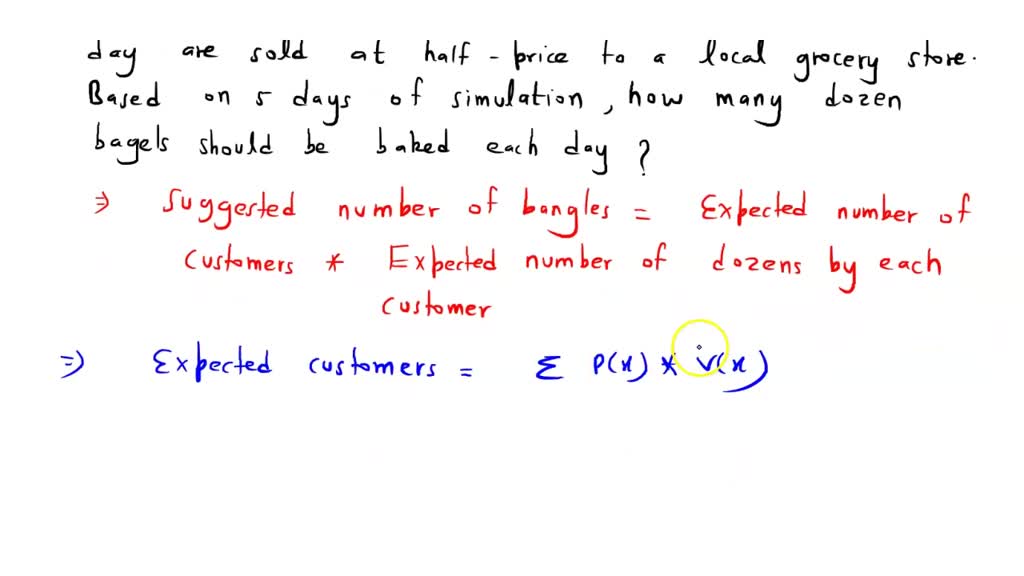 day are sold at half - price to a local grocery store.
Based on 5 days of simulation, how many dozen
bagels should be baked each day?
⇒ Suggested number of bangles = Expected number of
customers * Expected number of dozens by each
customer
⇒ Expected customers = Σ P(x) * V(x)